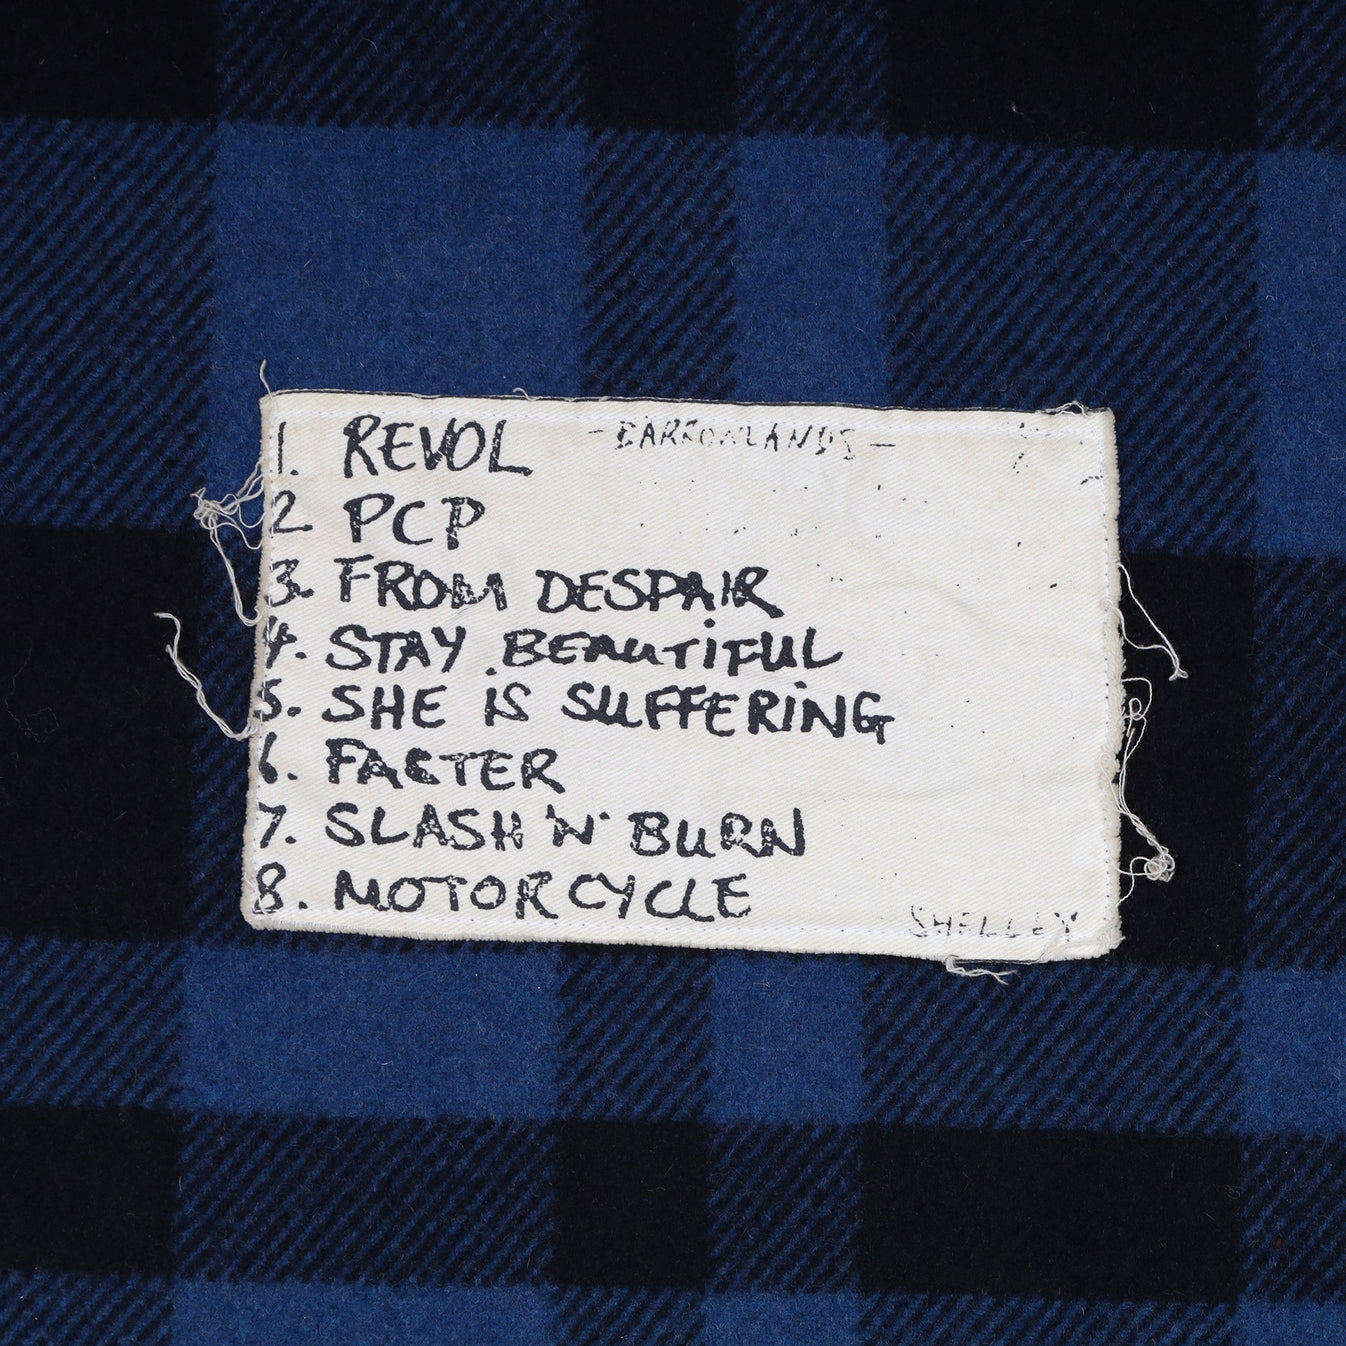 - BARROWLANDS -
1. REVOL
2 PCP
3. FROM DESPAIR
4. STAY BEAUTIFUL
5. SHE IS SUFFERING
6. FASTER
7. SLASH 'N' BURN
8. MOTORCYCLE
SHELLEY